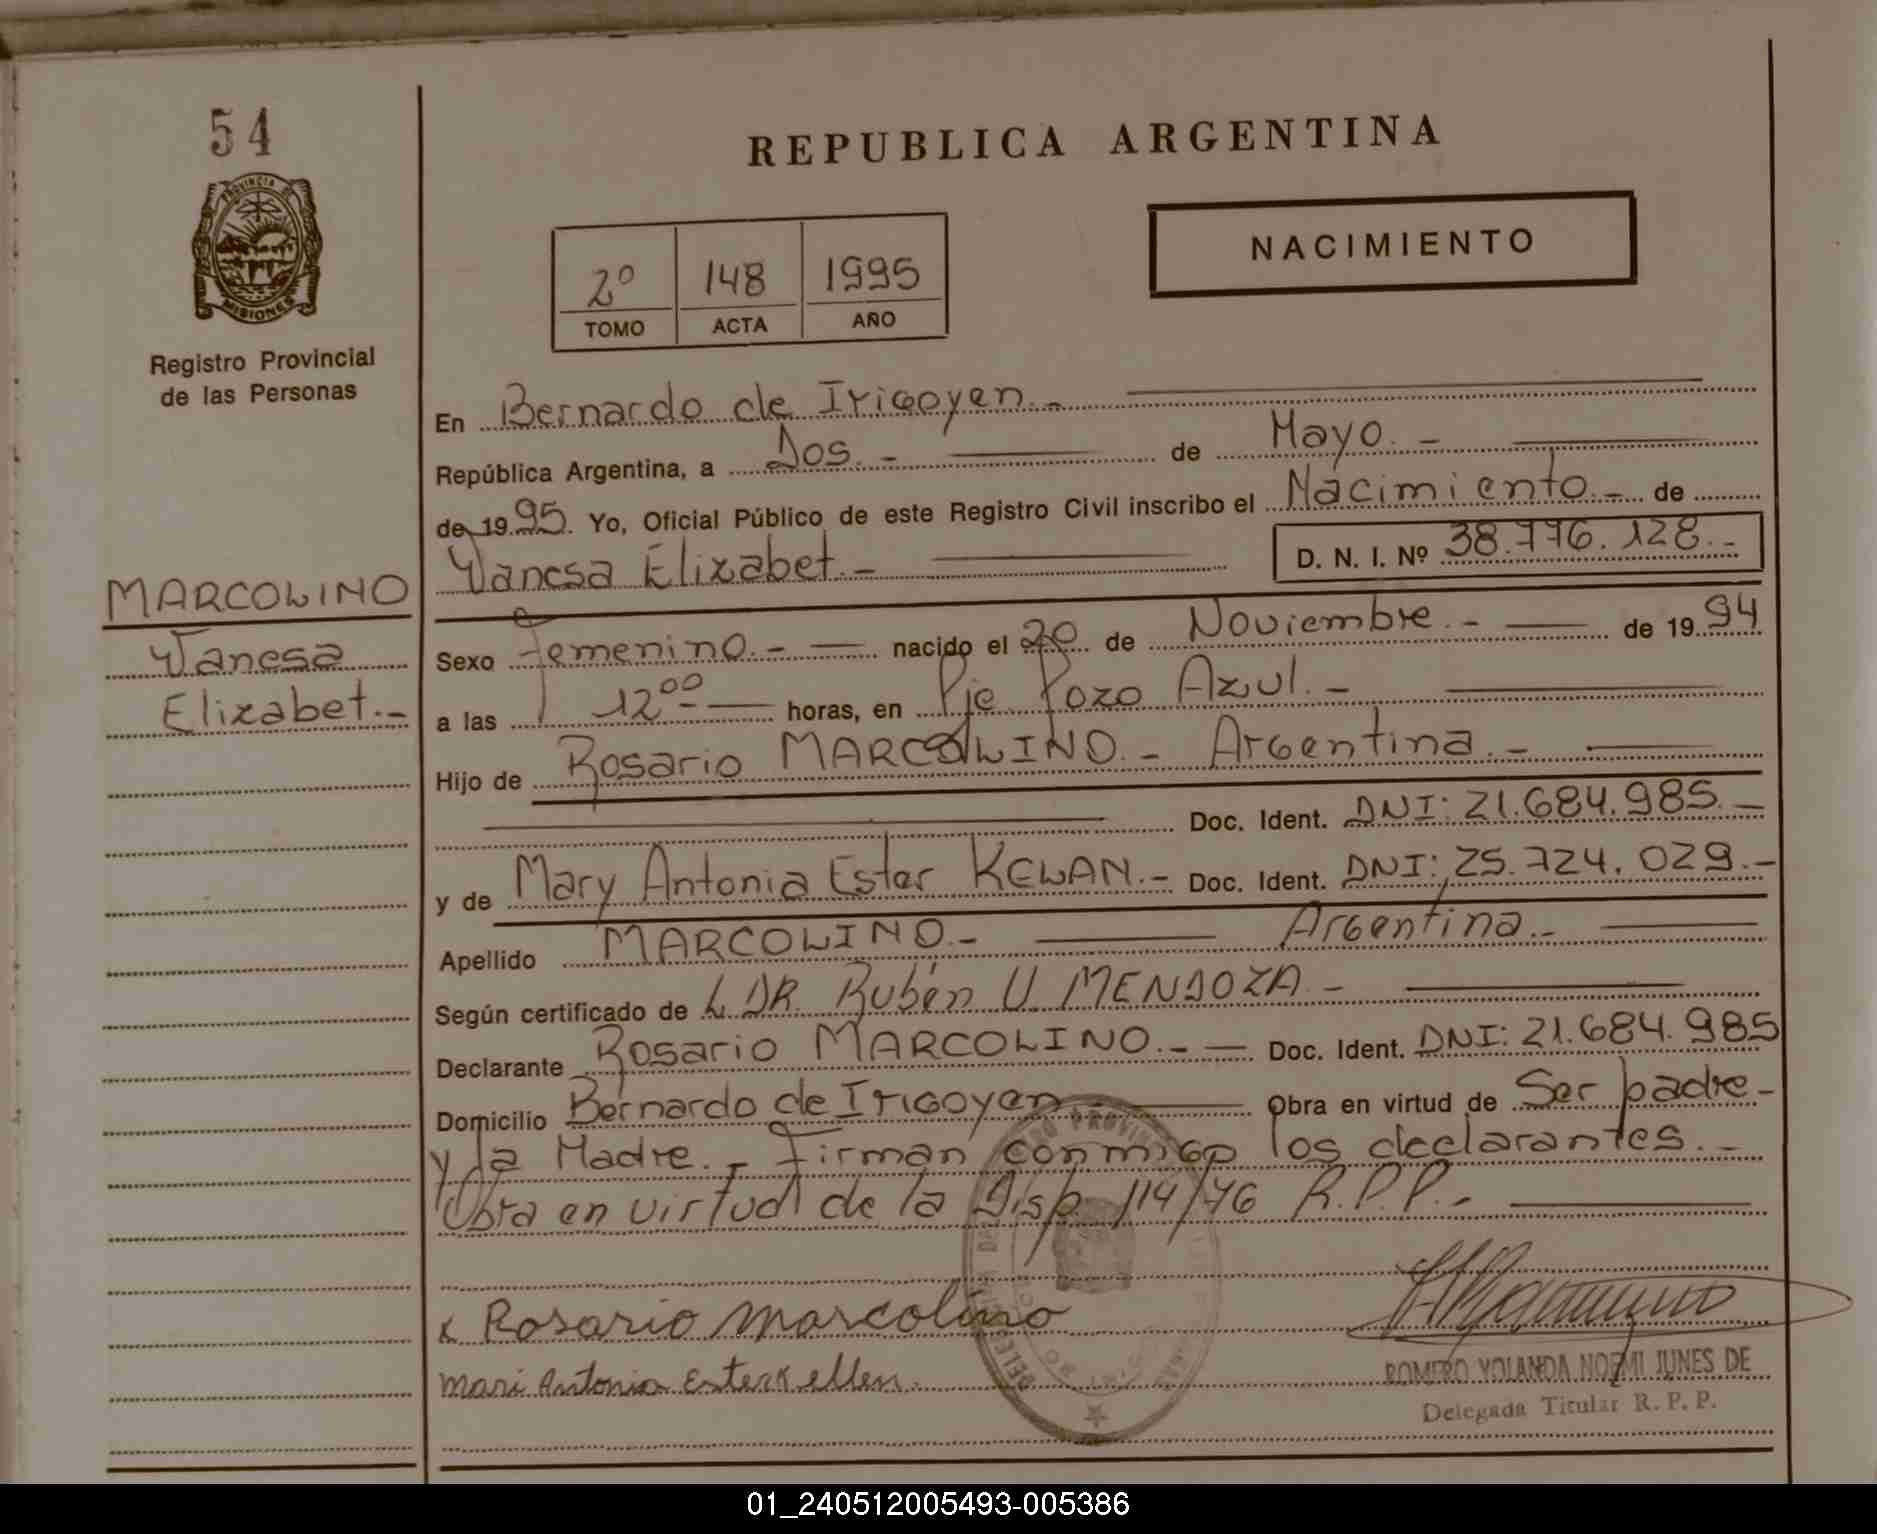 54
PROVINCIA DE
MISIONES
Registro Provincial
de las Personas
MARCOLINO
Vanesa
Elizabet.-
REPUBLICA ARGENTINA
NACIMIENTO
2º 148 1995
TOMO ACTA AÑO
En Bernardo de Irigoyen.-
República Argentina, a Dos.- de Mayo.-
de 1995. Yo, Oficial Público de este Registro Civil inscribo el Nacimiento.- de
Vanesa Elizabet.- D. N. I. Nº 38.776.128.-
Sexo Femenino.- nacido el 20 de Noviembre.- de 1994
a las 12 00 - horas, en Pje Pozo Azul.-
Hijo de Rosario MARCOLINO.- Argentina.-
Doc. Ident. DNI: 21.684.985.-
y de Mary Antonia Ester KELAN.- Doc. Ident. DNI: 25.724.029.-
Apellido MARCOLINO.- Argentina.-
Según certificado de L DR. Rubén U. MENDOZA.-
Declarante Rosario MARCOLINO.- Doc. Ident. DNI: 21.684.985
Domicilio Bernardo de Irigoyen.- Obra en virtud de Ser padre-
y la Madre.- Firman conmigo los declarantes.-
Obra en virtud de la Disp. 114/76 R.P.P.-
x Rosario Marcolino
Mari Antonia Ester Kellen.
ROMERO YOLANDA NOEMI JUNES DE
Delegada Titular R. P. P.
01_240512005493-005386